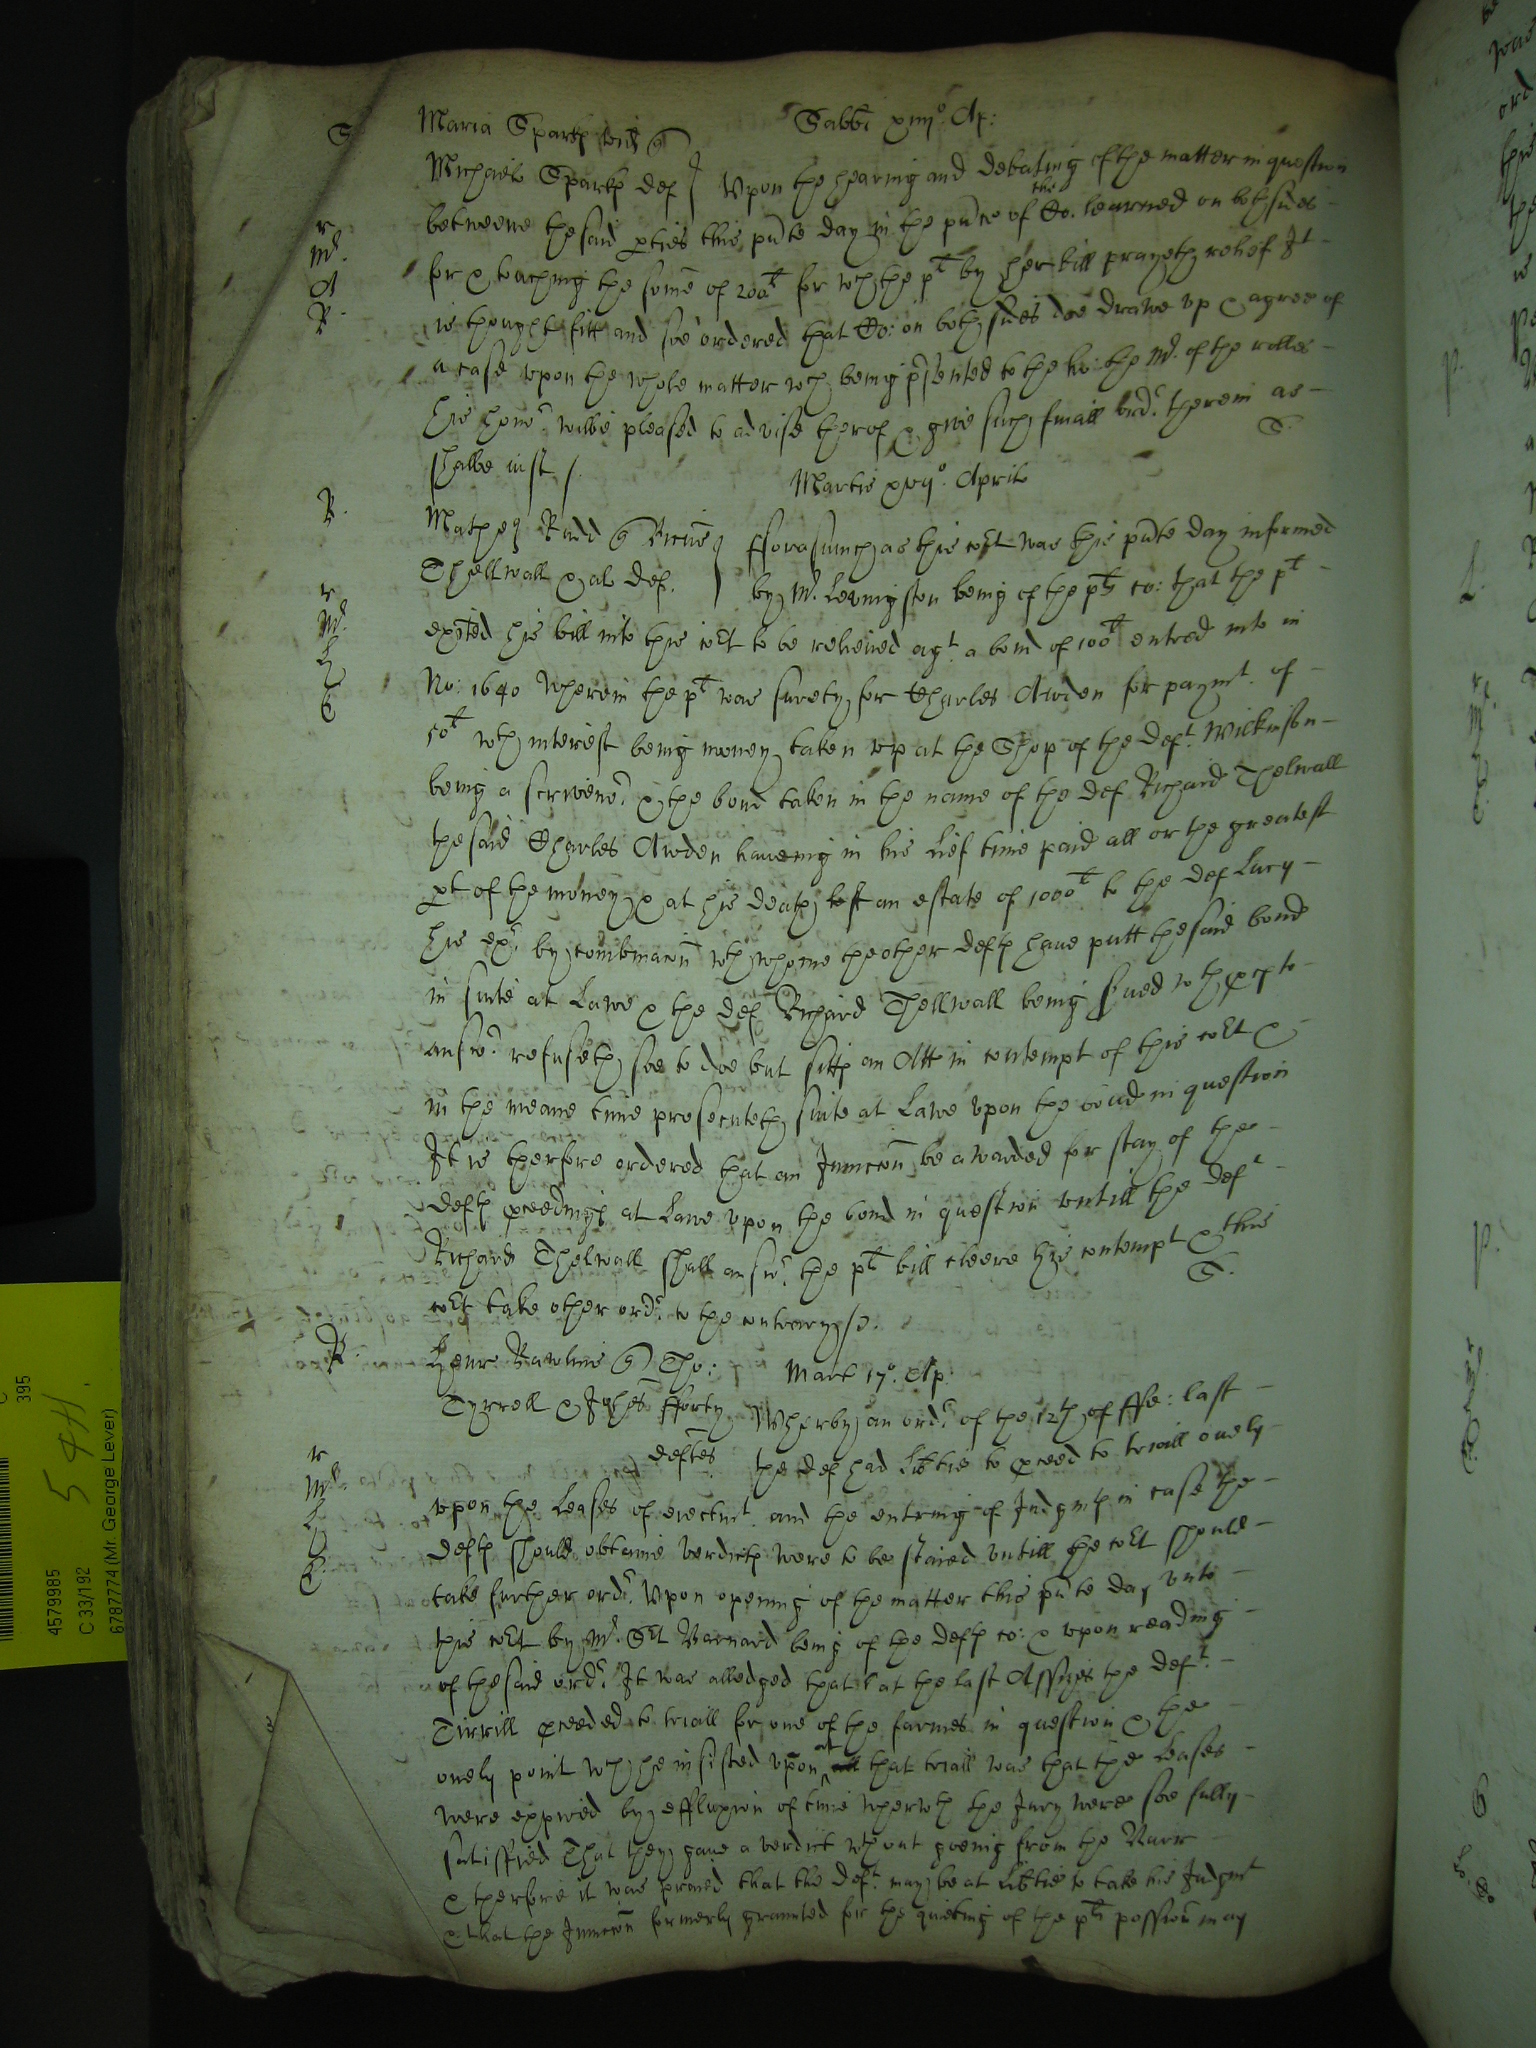 S
Maria Sparks vid q
Sabbi xiiij° Ap:
Michaelem Sparks def } Upon the hearing and debating of the matter in question
betweene the said pties this pnte day in the pnce of the Co. learned on both sides
r
Mr.
A
R.
for & touching the some of 200li for wch the plt by her bill prayeth relief It
is thought fitt and soe ordered that Co: on both sides doe drawe up & agree of
a case upon the whole matter wch being psented to the ho: the Mr. of the rolles
his honor. wilbe pleased to advise therof & give such finall ordr. therein as
shalbe iust /.
S.
Martis xvij°. Aprilis
R.
Matheus Rudd q Ricum
Thellwall & al def. } fforasmuch as this cort was this pnte day informed
by Mr. Levingston being of the plts co: that the plt
r
Mr.
H
C
exited his bill into this cort to be relieved agt. a bond of 100li entred into in
No: 1640 wherein the plt was surety for Charles Awden for paymt. of
50li wth interest being money taken up at the Shop of the deft. Wilkinson
being a scrivenr. & the bond taken in the name of the def Richard Thelwall
the said Charles Awden haveing in his lief time paid all or the greatest
pt of the money & at his death left an estate of 1000li to the def Lucy
his exr. by combinacon wth whome the other defts have putt the said bond
in suite at Lawe & the def Richard Thellwall being served wth pcs to
answr. refuseth soe to doe but sitts an Att in contempt of this cort &
in the meane time prosecuteth suite at Lawe upon the bond in question
It is therfore ordered that an Iniunccon be awarded for stay of the
defts pceedings at Lawe upon the bond in question untill the deft
Richard Thelwall shall answr. the plts bill cleere his contempt & this
cort take other ordr. to the contrary /.
S.
R.
Henr Rawlins q Tho:
Mart 17°. Ap:
Tyrrell & Iohes fforty
deftes
Wherby an ordr. of the 12th of ffe: last
the def had libtie to pceed to triall onely
r
Mr.
H
C.
upon the Leases of eiectmt. and the entring of Iudgmts in case the
defts should obtaine verdicts were to be staied untill the cort should
take further ordr. Upon opening of the matter this pnte day unto
this cort by Mr. Srt Barnard being of the defts co: & upon reading
of the said ordr. It was alledged that at the last Assizes the deft.
Tirrill pceeded to triall for one of the farmes in question & the
onely point wch he insisted upon at that triall was that the Leases
were expired by effluxion of time wherwth the Iury were soe fully
satisffied That they gave a verdict wthout goeing from the Barr
& therfore it was praied that the deft. may be at libtie to take his Iudgmt
& that the Iniunccon formerly graunted for the quieting of the plts possion may
395
4579985
C 33/192
6787774 (Mr. George Lever)